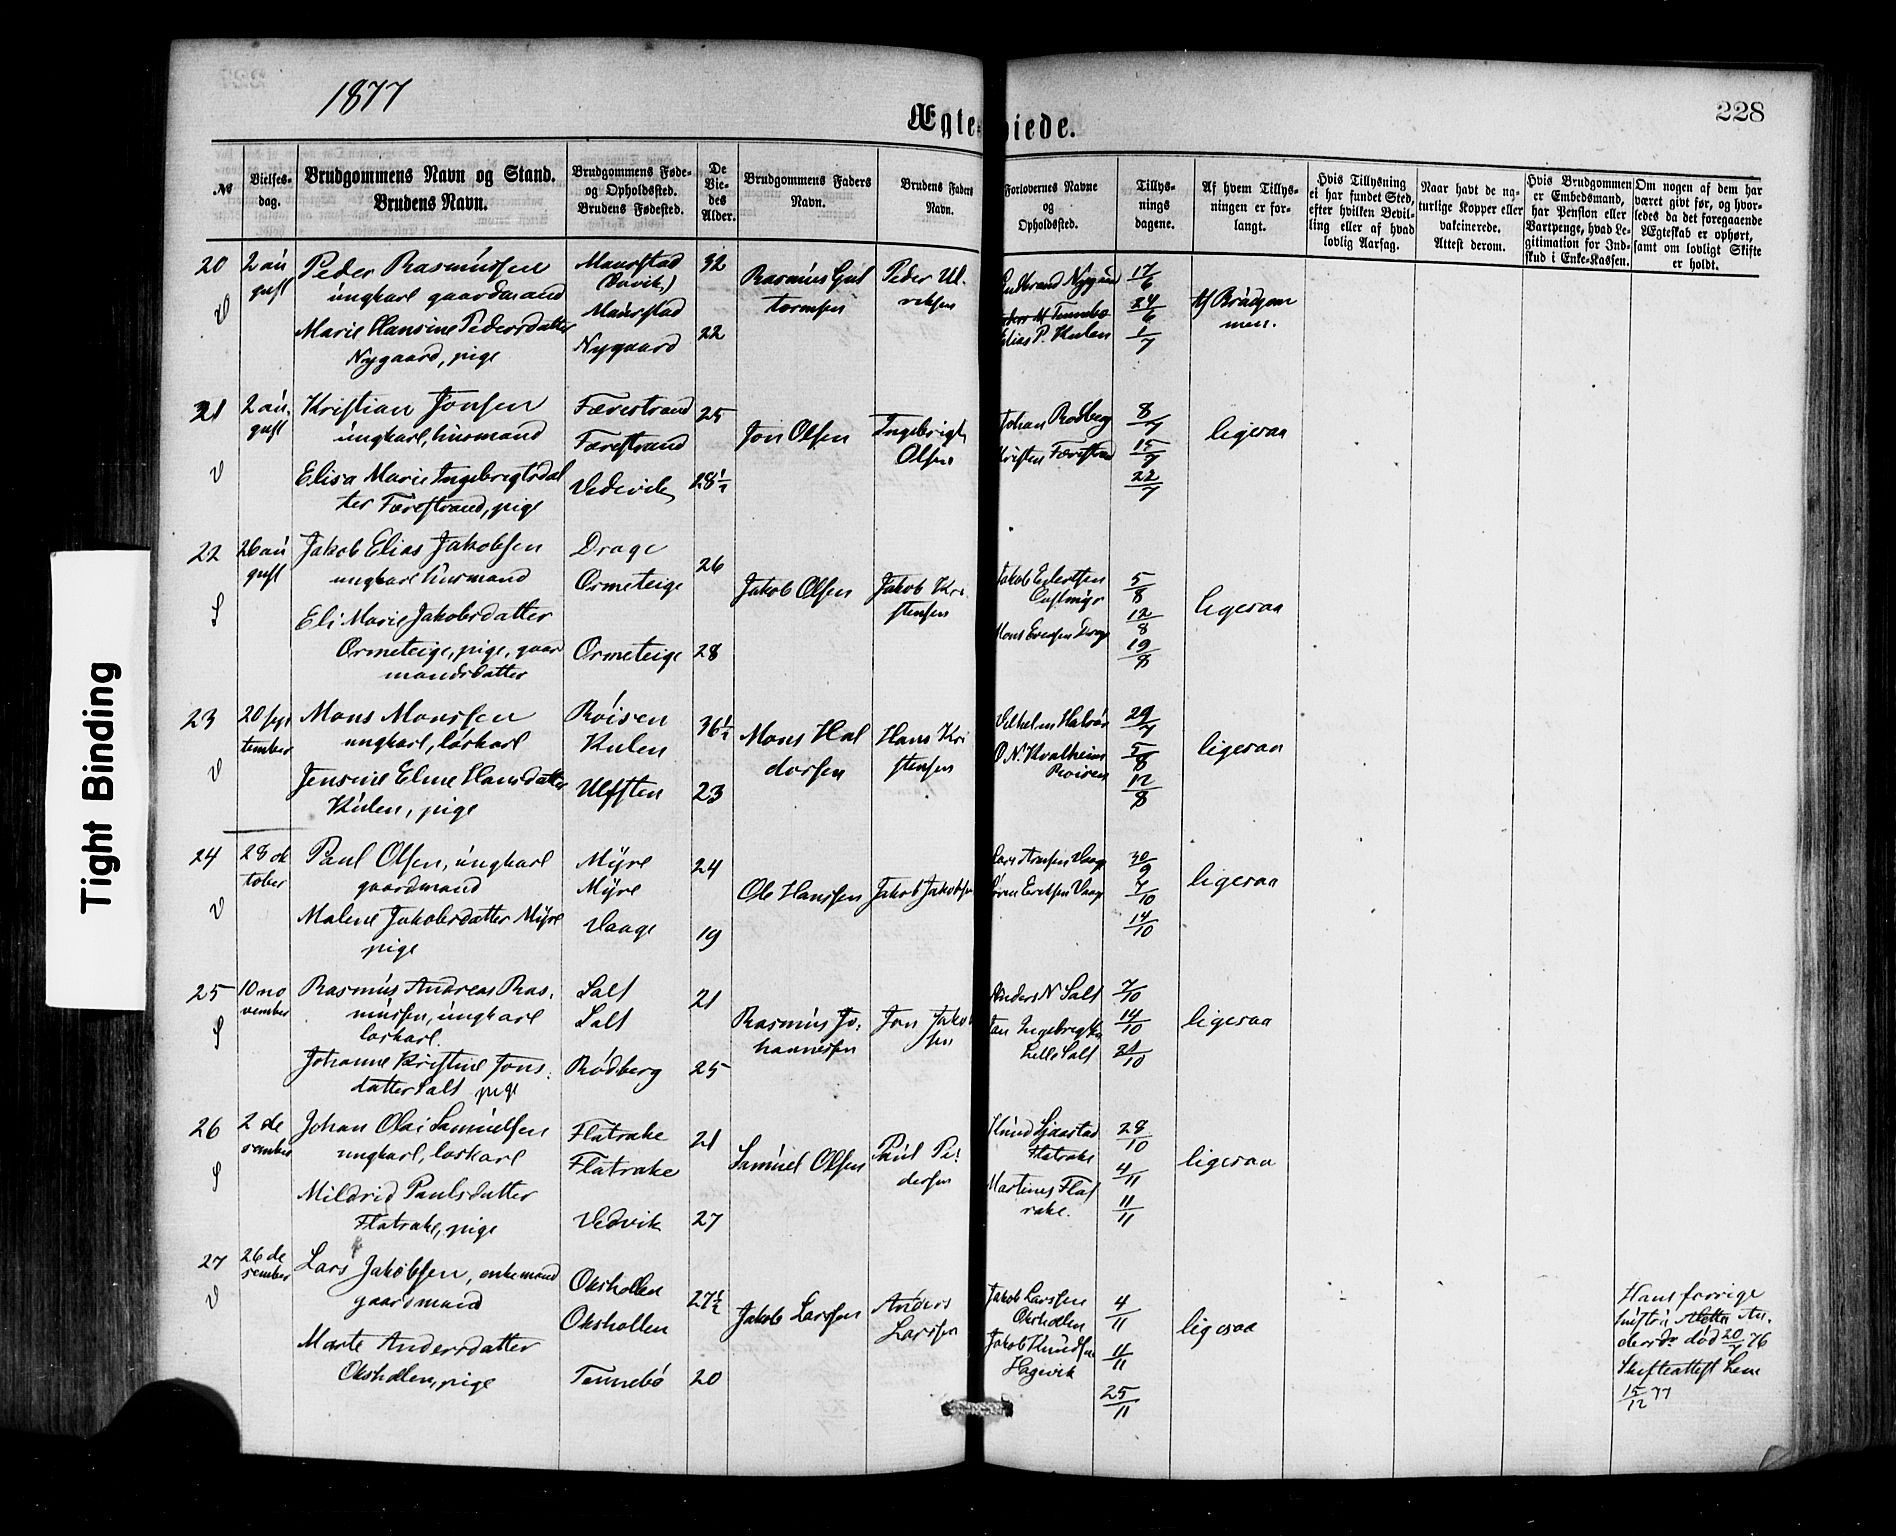 1877
228
Ægte-viede.
№
Vielses-dag.
Brudgommens Navn og Stand.
Brudens Navn.
Brudgommens Føde-
og Opholdssted.
Brudens Fødested.
De
Vie-
des
Alder.
Brudgommens Faders
Navn.
Brudens Faders
Navn.
Forlovernes Navne
og
Opholdssted.
Tillys-
nings
dagene.
Af hvem Tillys-
ningen er for-
langt.
Hvis Tillysning
ei har fundet Sted,
efter hvilken Bevil-
ling eller af hvad
lovlig Aarsag.
Naar havt de na-
turlige Kopper eller
vakcinerede.
Attest derom.
Hvis Brudgommen
er Embedsmand,
har Pension eller
Vartpenge, hvad Le-
gitimation for Ind-
skud i Enke-Kassen.
Om nogen af dem har
været givt før, og hvor-
ledes da det foregaaende
Ægteskab er ophørt,
samt om lovligt Skifte
er holdt.
20
2 au
gust
V
Peder Rasmussen
ungkarl gaardmand
Marie Hansine Pedersdatter
Nygaard, pige
Maurstad
(Davik)
Maurstad
Nygaard
32
22
Rasmus Gut
tormsen
Peder Ul-
riksen
Nygaard
Elias P. Kulen
17/6
24/6
1/7
Af Brudgom
men.
21
2 au-
gust
V
Kristian Jonsen
ungkarl, husmand
Elisa Marie Ingebrigtsdat
ter Færestrand, pige
Færestrand
Færestrand
Vedvik
25
28½
Jon Olsen
Ingebrigt
Olsen
Johan Rødberg
Kristen Færestrand
8/7
15/7
22/7
ligesaa
22
26 au
gust
S
Jakob Elias Jakobsen
ungkarl husmand
Eli Marie Jakobsdatter
Ormeteige, pige, gaard
mandsdatter
Drage
Ormeteige
Ormeteige
26
28
Jakob Olsen
Jakob Kri
stensen
Jakob
Mons Drage
5/8
12/8
19/8
ligesaa
23
20 sep
tember
V
Mons Monssen
ungkarl, løskarl
Jensine Eline Hansdatter
Kulen, pige
Røisen
Kulen
Ulfsten
36½
23
Mons Hal
dorsen
Hans Kri
stensen
Vilhelm Halsør
O. N. Kvalheim
Roisen
29/7
5/8
12/8
ligesaa
24
28 ok
tober
V
Paul Olsen, ungkarl
gaardmand
Malene Jakobsdatter Myre
pige
Myre
Myre
Vaage
24
19
Ole Hanssen
Jakob Jakobsen
Vaage
Søren Eriksen Vaage
30/9
7/10
14/10
ligesaa
25
10 no
vember
S
Rasmus Andreas Ras-
mussen, ungkarl
løskarl.
Johanne Kristine Jons-
datter Salt pige
Salt
Salt
Rødberg
21
25
Rasmus Jo-
hannessen
Jon Jakob
sen
Anders N Salt
Lille Salt
7/10
14/10
21/10
ligesaa
26
2 de
sember
S
Johan Olai Samuelsen
ungkarl, løskarl
Mildrid Paulsdatter
Flatrake, pige
Flatrake
Flatrake
Vedvik
21
27
Samuel Olsen
Paul Pe-
dersen
Knud Sjaastad
Flatrake
Martines Flat
rake.
28/10
4/11
11/11
ligesaa
27
26 de
sember
V
Lars Jakobsen, enkemand
gaardmand
Marte Andersdatter
Oksholen, pige
Oksholen
Oksholen
Tennebø
27½
20
Jakob Larssen
Anders
Larssen
Jakob Larssen
Oksholen
Jakob Knudsen
Hagevik
4/11
11/11
25/11
ligesaa
Hans forrige
hustru An-
dersdr død 20/7 76
Skifteattest
15/12 77
Tight Binding